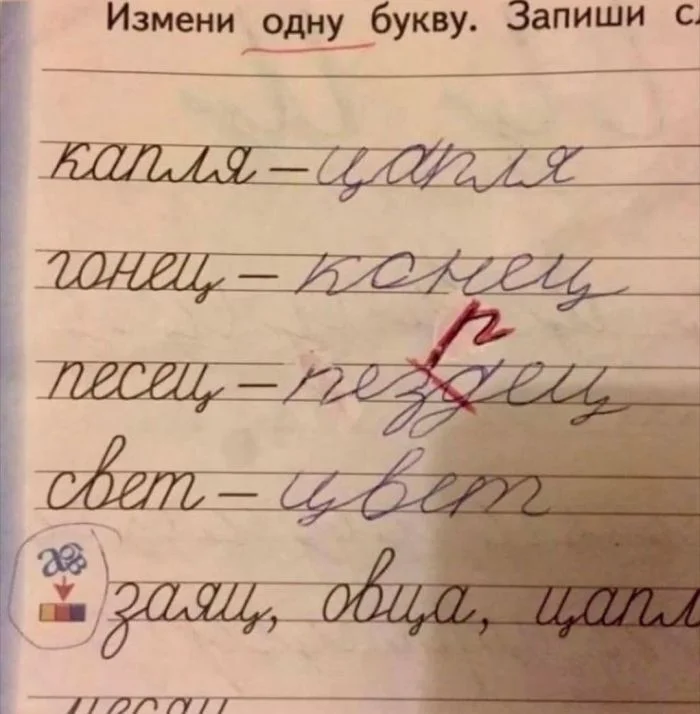 Измени одну букву. Запиши
капля – цапля
гонец – конец
р
песец – пездец
свет – цвет
заяц, овца, цапл
месяц